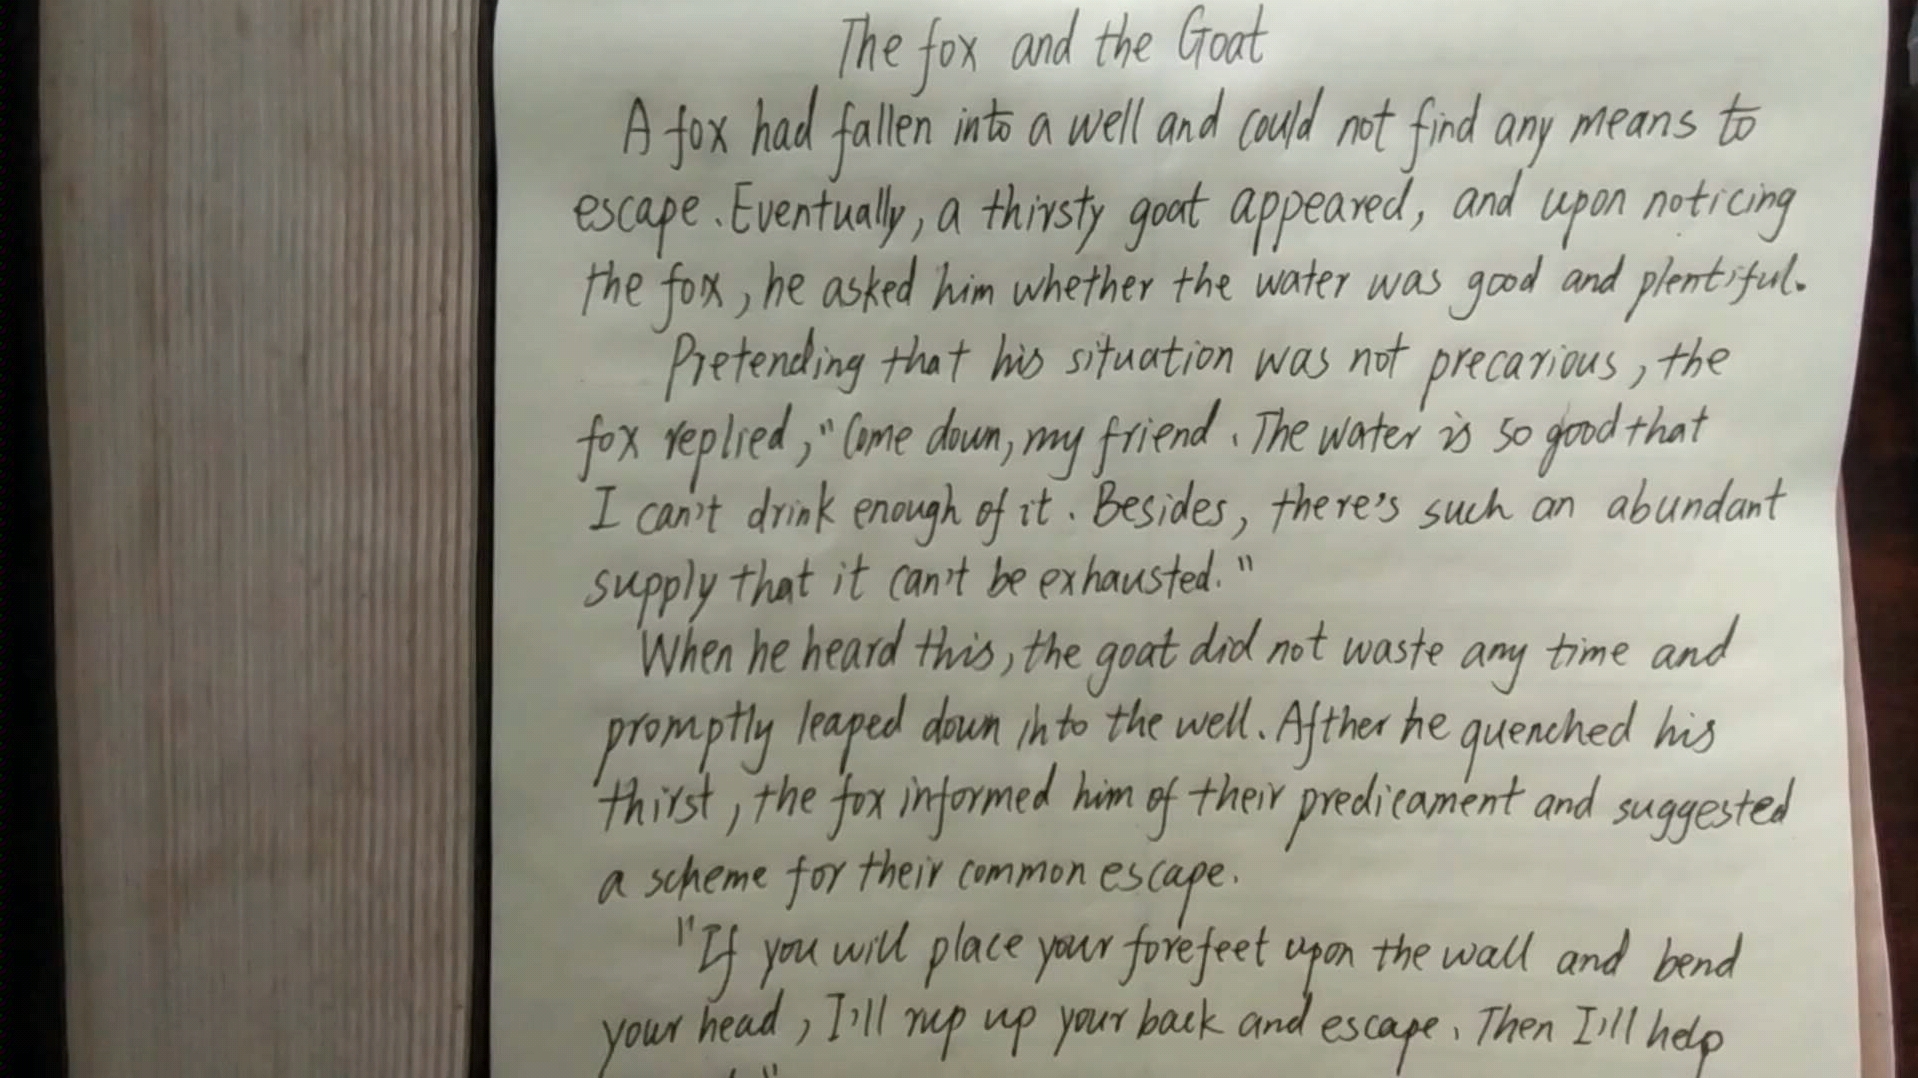 The fox and the Goat
A fox had fallen into a well and could not find any means to
escape. Eventually, a thirsty goat appeared, and upon noticing
the fox, he asked him whether the water was good and plentiful.
Pretending that his situation was not precarious, the
fox replied, "Come down, my friend. The water is so good that
I can't drink enough of it. Besides, there's such an abundant
supply that it can't be exhausted."
When he heard this, the goat did not waste any time and
promptly leaped down into the well. Afther he quenched his
thirst, the fox informed him of their predicament and suggested
a scheme for their common escape.
"If you will place your forefeet upon the wall and bend
your head, I'll rup up your back and escape. Then I'll help